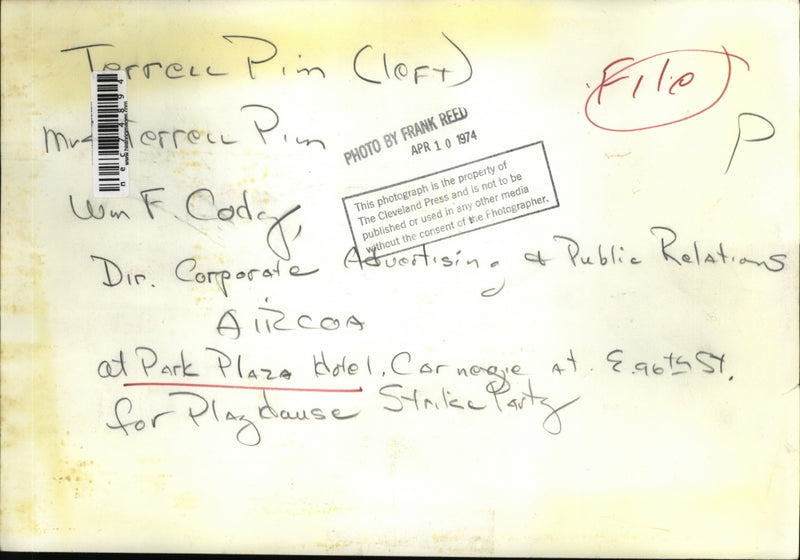 Terrell Pim (left)
File
Mrs Terrell Pim
P
PHOTO BY FRANK REED
APR 10 1974
Wm F. Cody,
This photograph is the property of
The Cleveland Press and is not to be
published or used in any other media
without the consent of the Photographer.
Dir. Corporate Advertising & Public Relations
AIRCOA
at Park Plaza Hotel, Carnegie at E. 96th St.
for Playhouse Strike Party